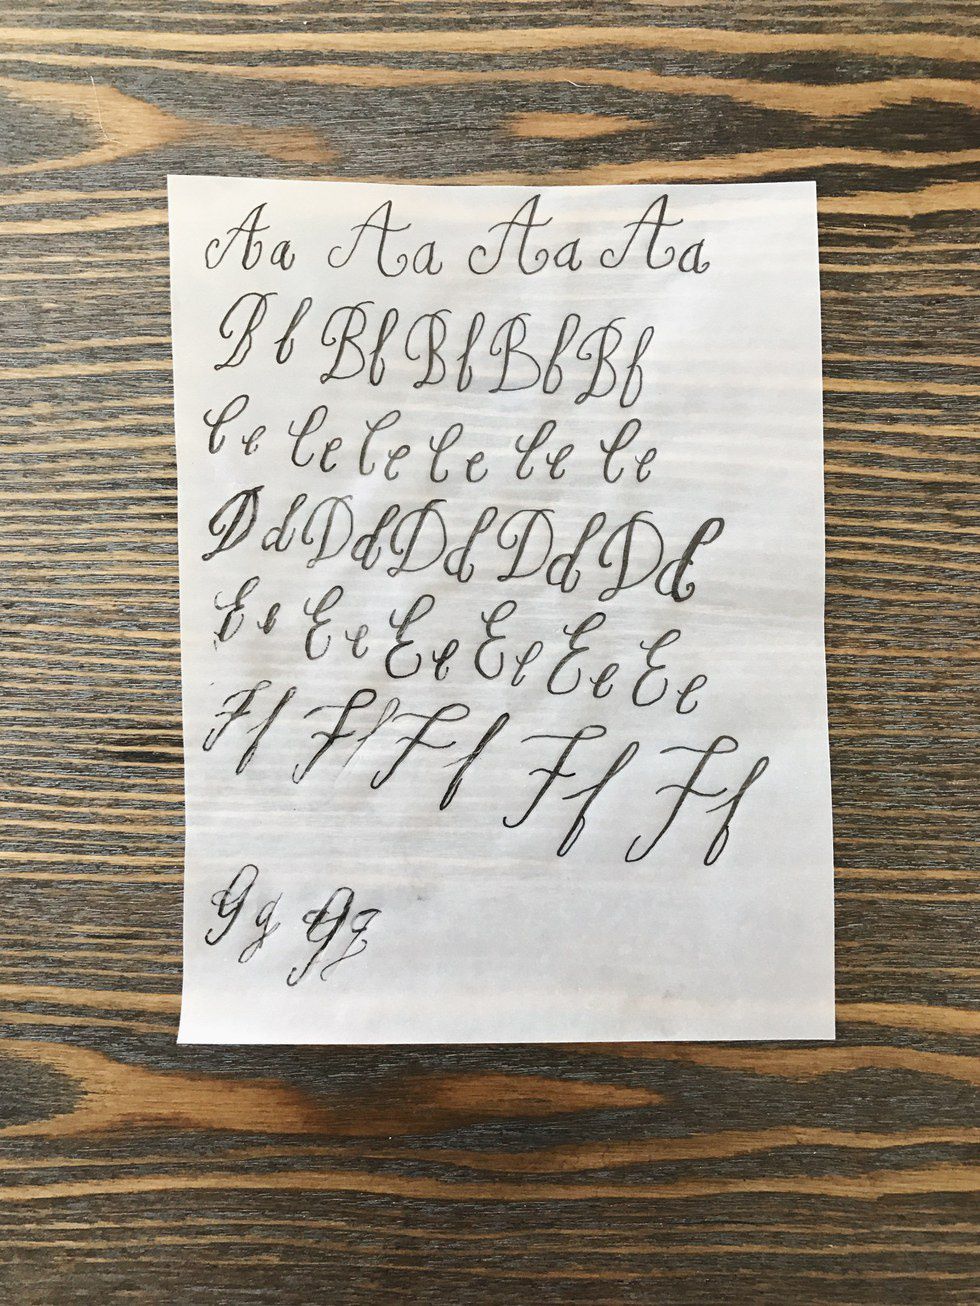 Aa Aa Aa Aa
Bb Bb Bb Bb Bb
Cc Cc Cc Cc Cc Cc
Dd Dd Dd Dd Dd
Ee Ee Ee Ee Ee Ee
Ff Ff Ff Ff Ff
Gg Gg